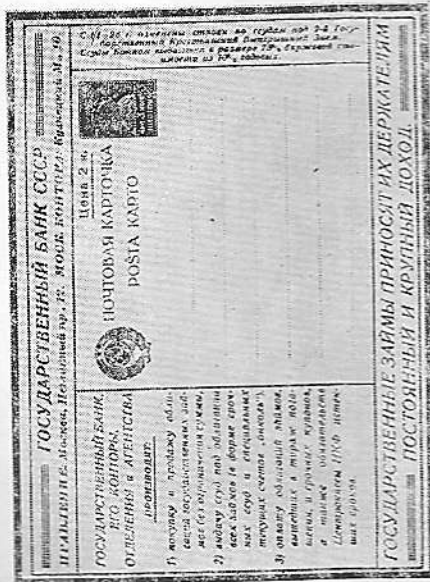 ГОСУДАРСТВЕННЫЙ БАНК СССР
ПРАВЛЕНИЕ: Москва, Неглинный пр., 12. МОСК. КОНТОРА: Кузнецкий М.,
ГОСУДАРСТВЕННЫЙ БАНК,
ЕГО КОНТОРЫ,
ОТДЕЛЕНИЯ и АГЕНТСТВА
ПРОИЗВОДИТ:
1) покупку и продажу обли-
гаций государственных зай-
мов без ограничения суммы,
2) выдачу ссуд под облигации
всех займов (в форме сроч-
ных ссуд и специальных
текущих счетов „онколь“),
3) оплату облигаций займов,
вышедших в тираж пога-
шения, и срочных купонов,
а также обязательств
Центрокассы НКФ истек-
ших сроков.
ПОЧТОВАЯ КАРТОЧКА
POŜTA KARTO
Цена 2 к.
изменены ставки по ссудам под 2-й Госу-
дарственный Крестьянский Выигрышный Заем.
Ссуды Банком выдаются в размере
годовых.
ГОСУДАРСТВЕННЫЕ ЗАЙМЫ ПРИНОСЯТ ИХ ДЕРЖАТЕЛЯМ
ПОСТОЯННЫЙ И КРУПНЫЙ ДОХОД.